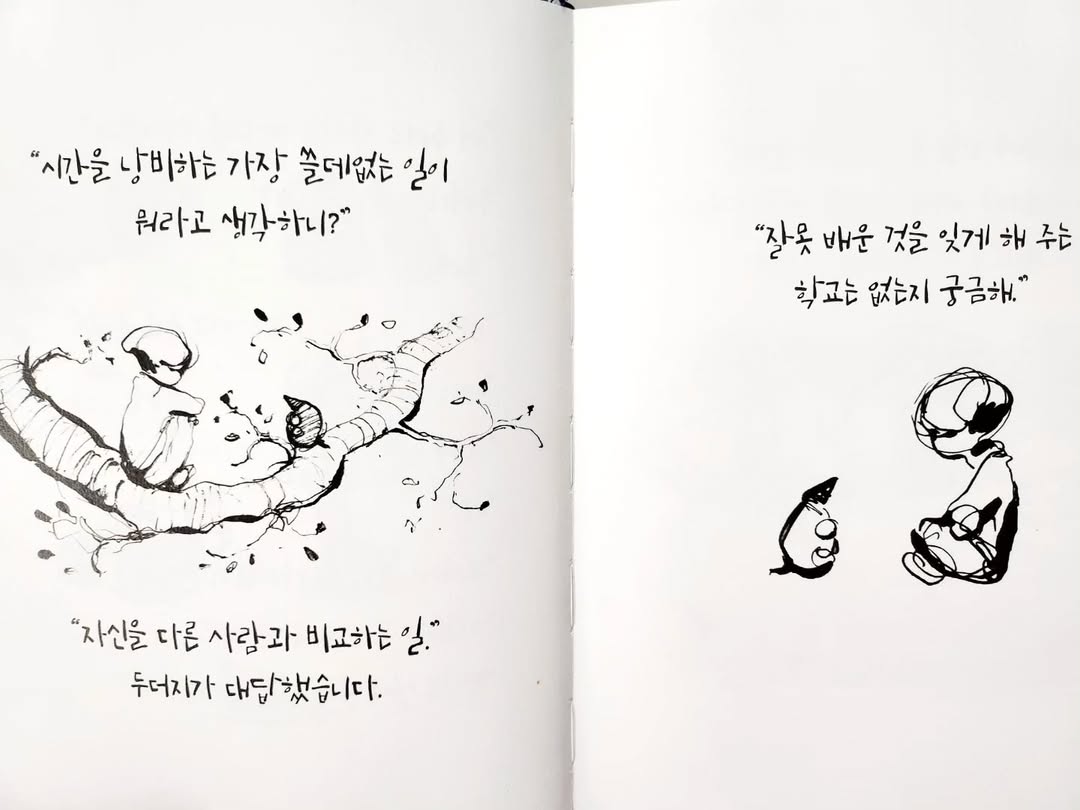 “시간을 낭비하는 가장 쓸데없는 일이
뭐라고 생각하니?”
“자신을 다른 사람과 비교하는 일.”
두더지가 대답했습니다.
“잘못 배운 것을 잊게 해 주는
학교는 없는지 궁금해.”